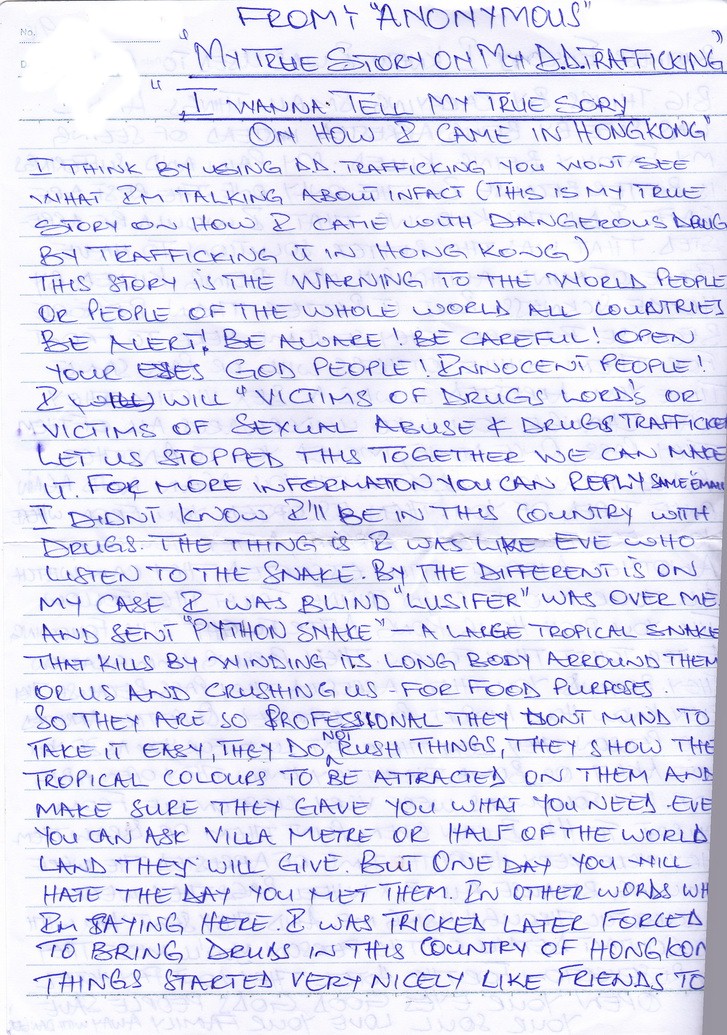 No.
D
FROM: "ANONYMOUS"
"MY TRUE STORY ON MY D.D. TRAFFICKING"
"I WANNA TELL MY TRUE SORY
ON HOW I CAME IN HONGKONG"
I THINK BY USING D.D. TRAFFICKING YOU WONT SEE
WHAT IM TALKING ABOUT INFACT (THIS IS MY TRUE
STORY ON HOW I CAME WITH DANGEROUS DRUG
BY TRAFFICKING IT IN HONG KONG)
THIS STORY IS THE WARNING TO THE WORLD PEOPLE
OR PEOPLE OF THE WHOLE WORLD ALL COUNTRIES
BE ALERT! BE AWARE! BE CAREFUL! OPEN
YOUR EYES GOD PEOPLE! INNOCENT PEOPLE!
I WILL "VICTIMS OF DRUGS LORD'S OR
VICTIMS OF SEXUAL ABUSE & DRUGS TRAFFICKE
LET US STOPPED THIS TOGETHER WE CAN MAKE
IT. FOR MORE INFORMATION YOU CAN REPLY SAME EMAIL
I DIDNT KNOW I'll BE IN THIS COUNTRY WITH
DRUGS. THE THING IS I WAS LIKE EVE WHO
LISTEN TO THE SNAKE. BY THE DIFFERENT IS ON
MY CASE I WAS BLIND "LUSIFER" WAS OVER ME
AND SENT "PYTHON SNAKE" - A LARGE TROPICAL SNAKE
THAT KILLS BY WINDING ITS LONG BODY ARROUND THEM
OR US AND CRUSHING US - FOR FOOD PURPOSES.
SO THEY ARE SO PROFESSIONAL THEY DONT MIND TO
TAKE IT EASY, THEY DO NOT RUSH THINGS, THEY SHOW THE
TROPICAL COLOURS TO BE ATTRACTED ON THEM AND
MAKE SURE THEY GAVE YOU WHAT YOU NEED. EVE
YOU CAN ASK VILLA METRE OR HALF OF THE WORLD
LAND THEY WILL GIVE. BUT ONE DAY YOU WILL
HATE THE DAY YOU MET THEM. IN OTHER WORDS WH
IM SAYING HERE. I WAS TRICKED LATER FORCED
TO BRING DRUGS IN THIS COUNTRY OF HONGKON
THINGS STARTED VERY NICELY LIKE FRIENDS TO